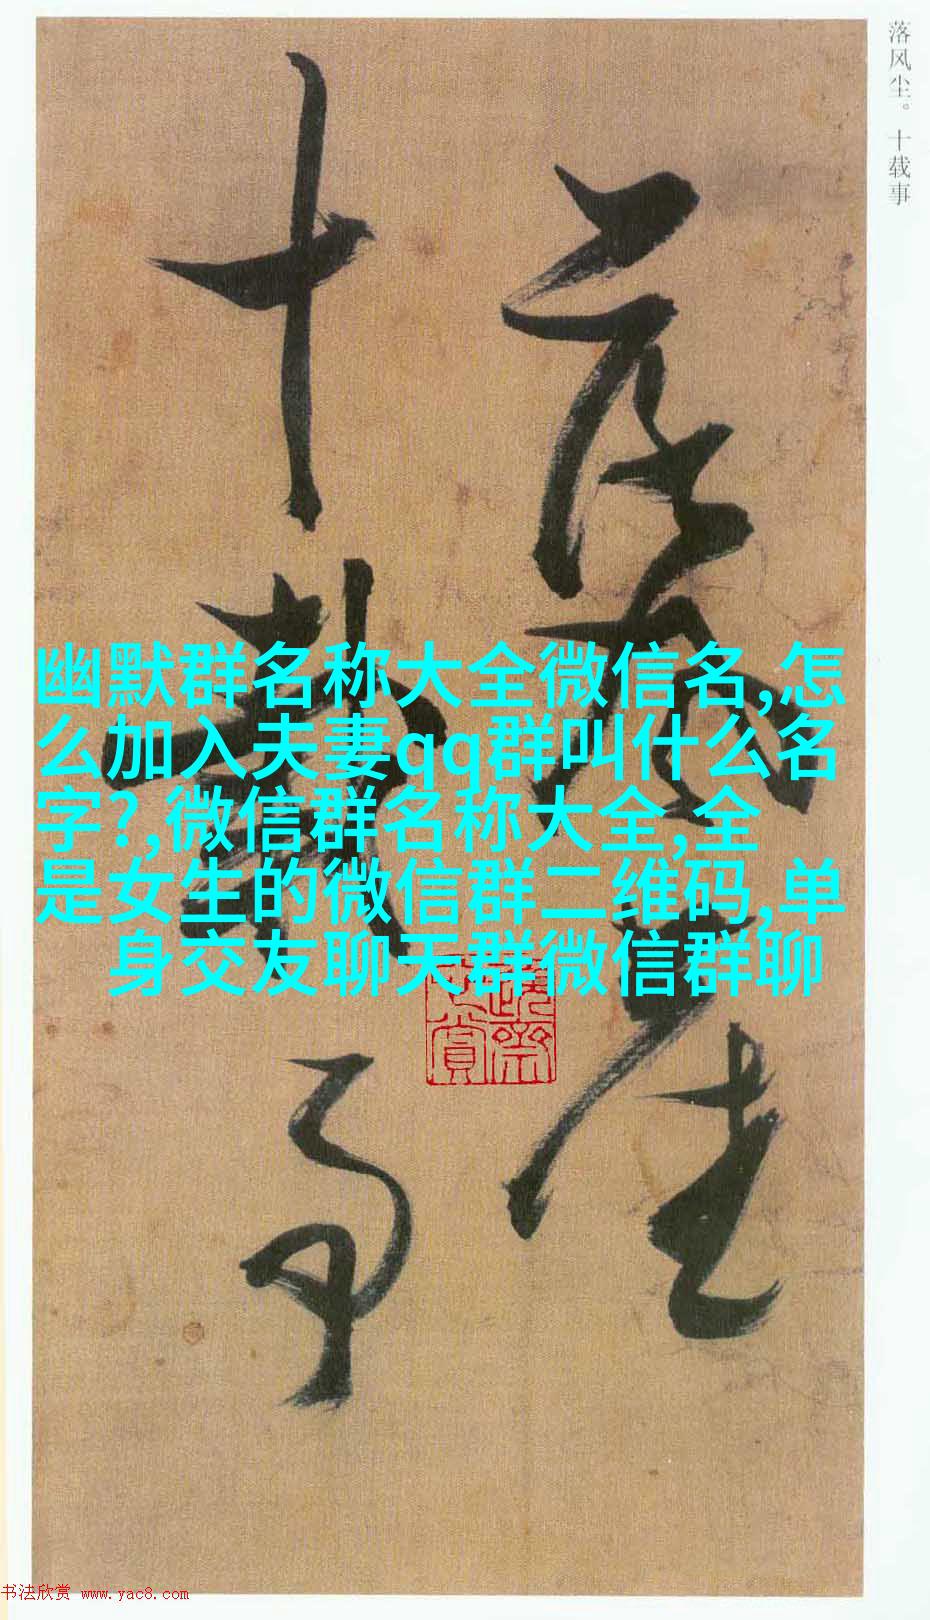 落风尘。十载事
落风尘
十载事
幽默群名称大全微信名,怎
么加入夫妻qq群叫什么名
字?,微信群名称大全,全
是女生的微信群二维码,单
身交友聊天群微信群聊
书法欣赏 www.yac8.com